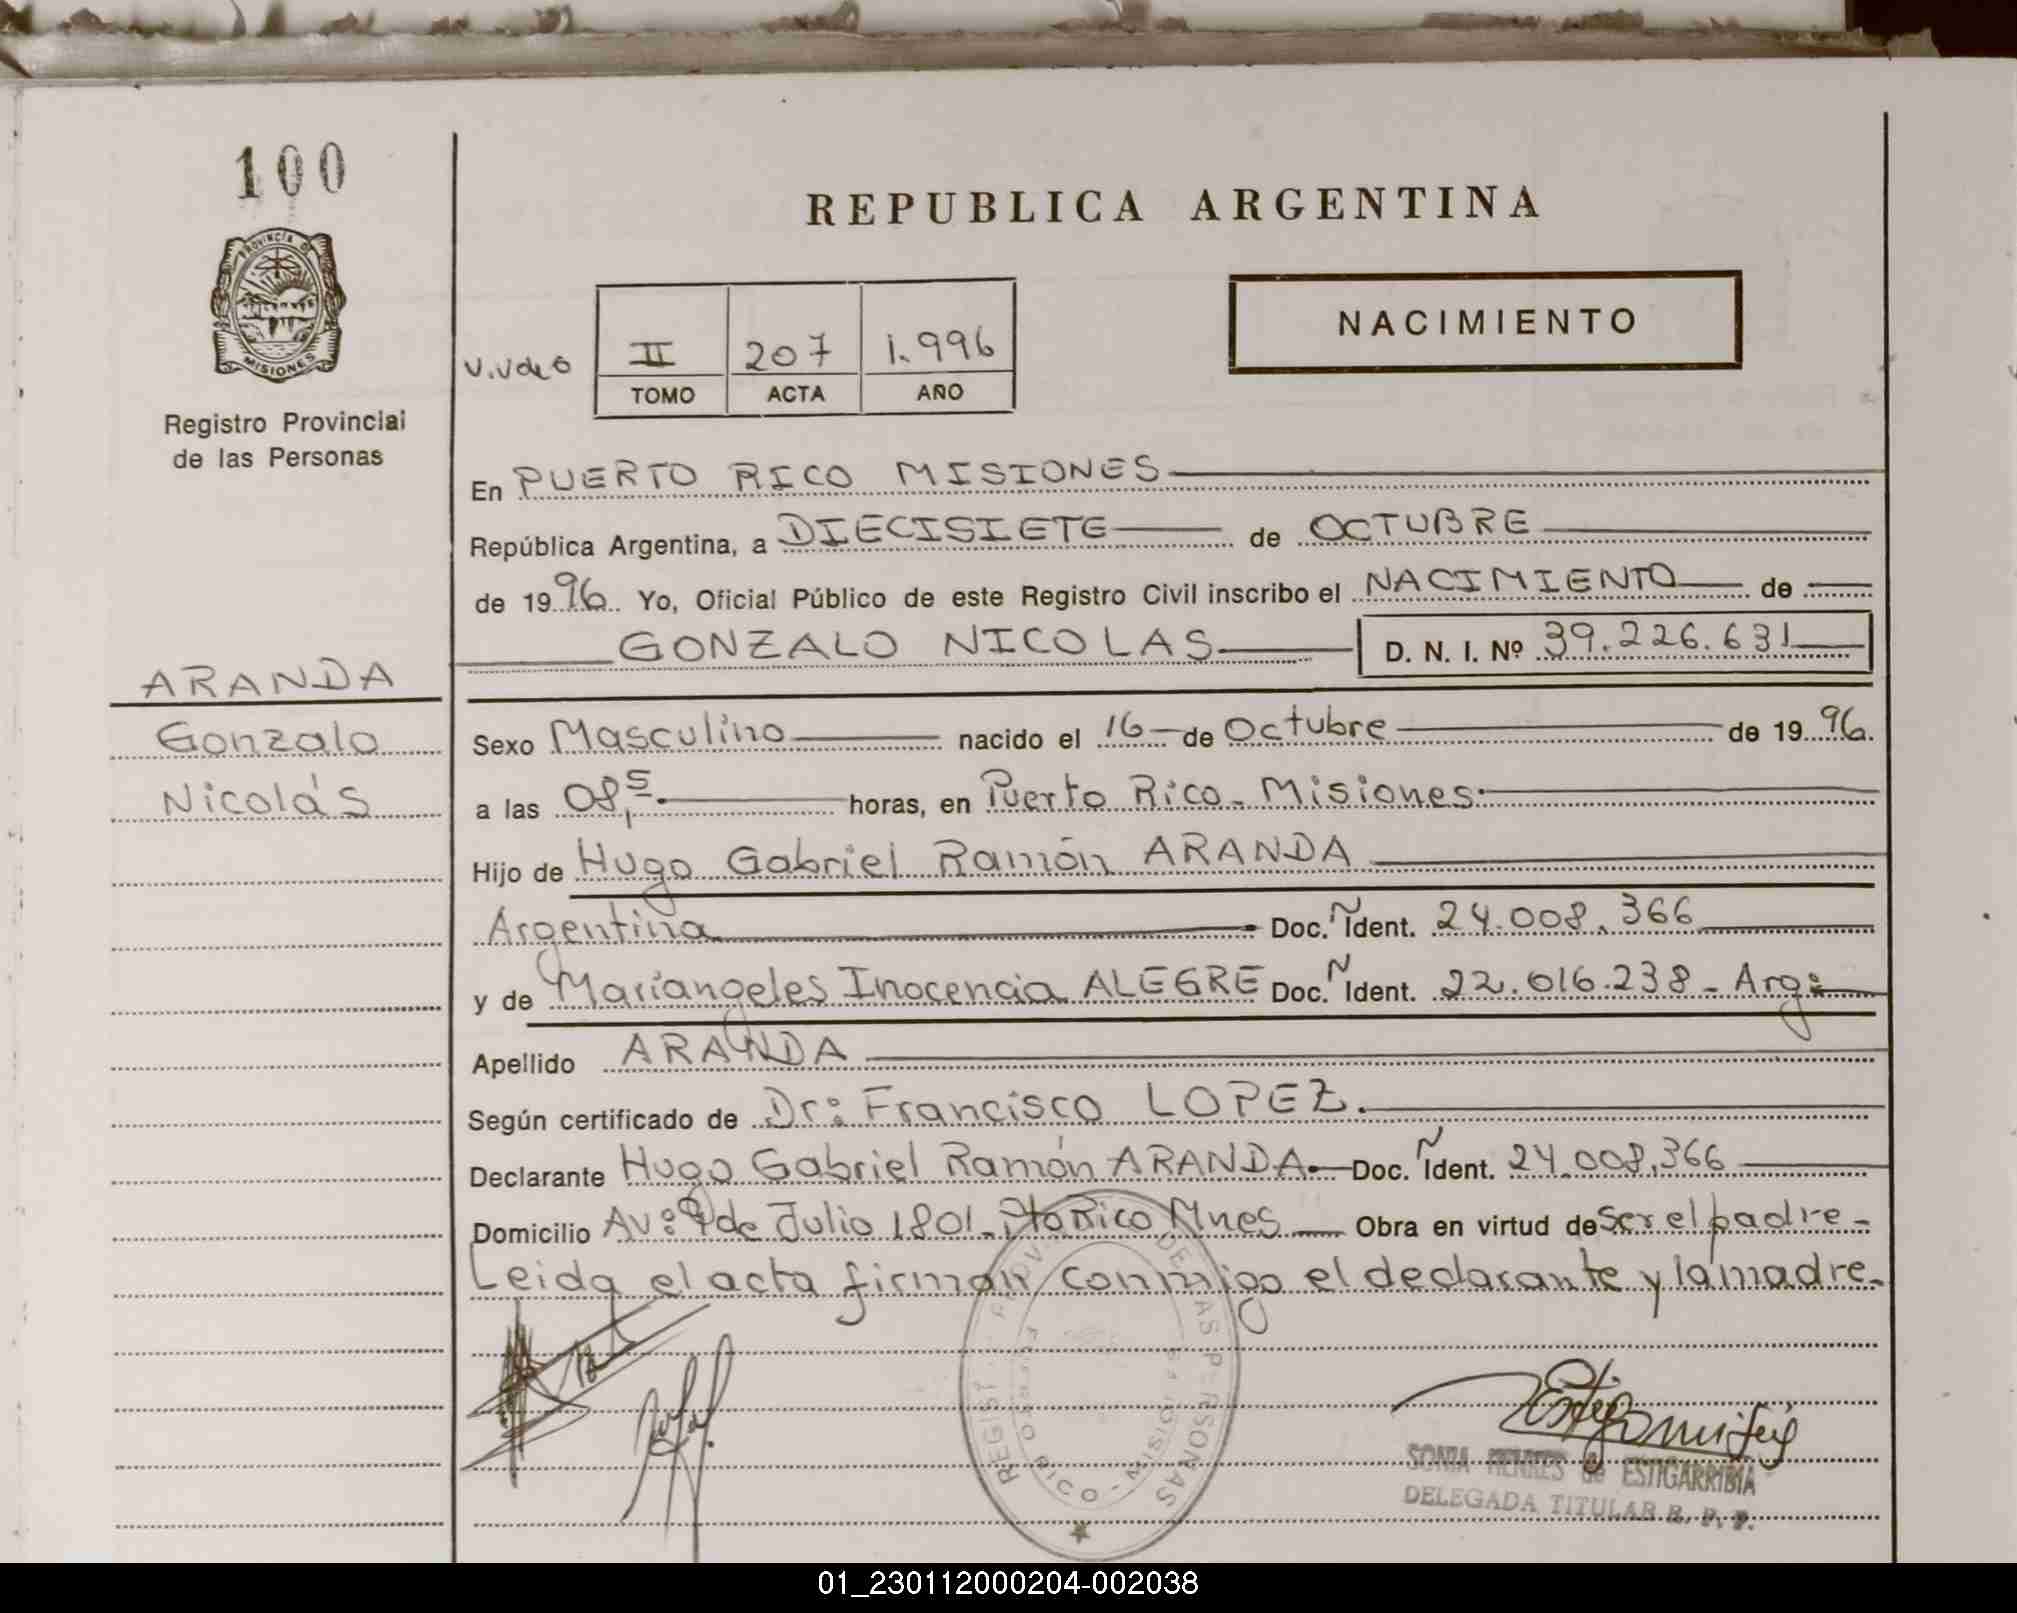 100
PROVINCIA DE
MISIONES
Registro Provincial
de las Personas
REPUBLICA ARGENTINA
II 207 1.996
TOMO ACTA AÑO
NACIMIENTO
En PUERTO RICO MISIONES
República Argentina, a DIECISIETE de OCTUBRE
de 1996 Yo, Oficial Público de este Registro Civil inscribo el NACIMIENTO de
GONZALO NICOLAS D. N. I. Nº 39.226.631
ARANDA
Gonzalo
Nicolás
Sexo Masculino nacido el 16 de Octubre de 1996.
a las 08,5 horas, en Puerto Rico - Misiones
Hijo de Hugo Gabriel Ramón ARANDA
Argentina Doc. Ident. 24.008.366
y de Mariangeles Inocencia ALEGRE Doc. Ident. 22.016.238 - Arg:
Apellido ARANDA
Según certificado de Dr: Francisco LOPEZ.
Declarante Hugo Gabriel Ramón ARANDA Doc. Ident. 24.008.366
Domicilio Av: 9 de Julio 1801 - Pto Rico Mnes Obra en virtud de ser el padre -
Leida el acta firman conmigo el declarante y la madre.
PUERTO RICO - MISIONES
SONIA HENKES de ESTIGARRIBIA
DELEGADA TITULAR R. P. P.
01_230112000204-002038